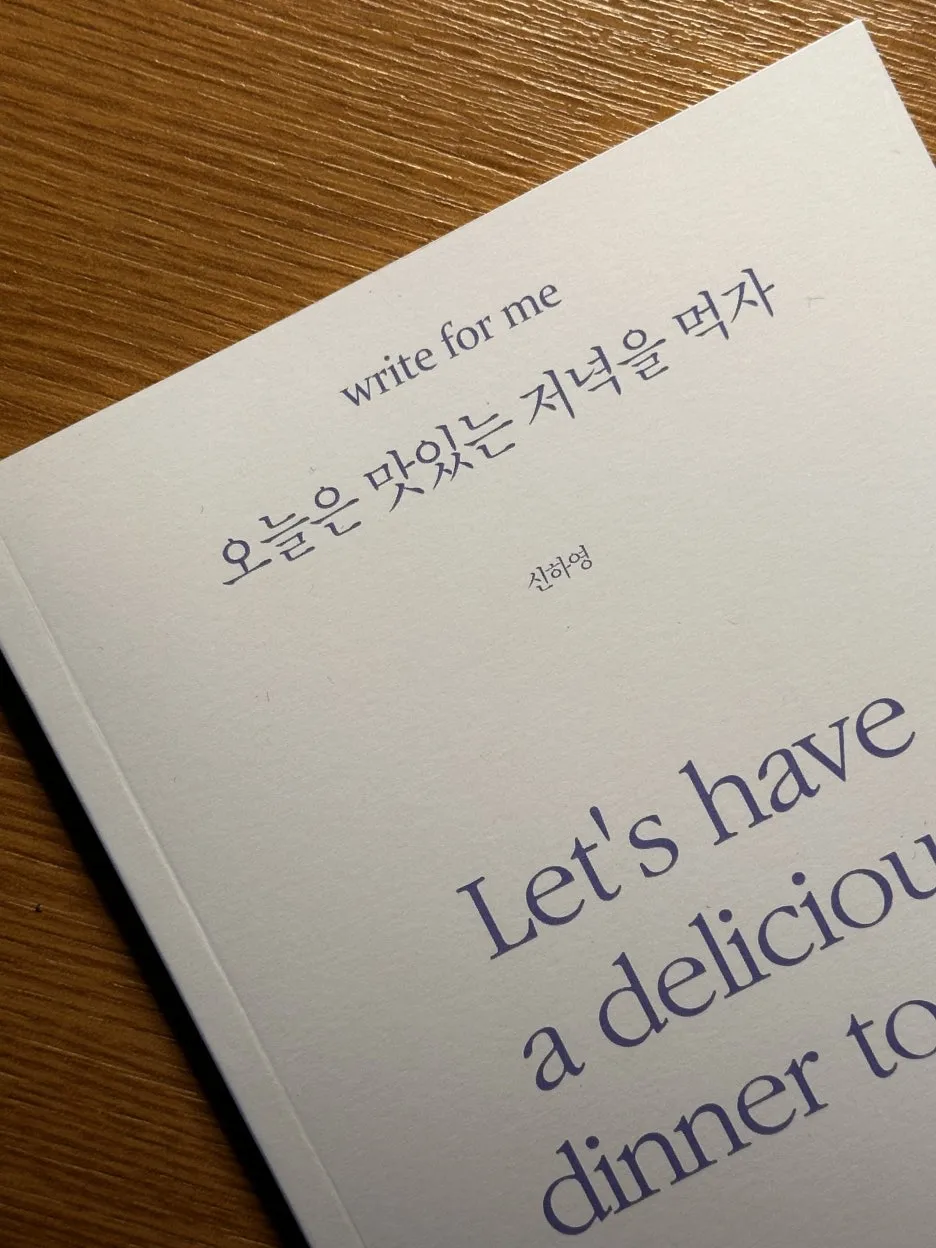 write for me
오늘은 맛있는 저녁을 먹자
신하영
Let's have
a deliciou
dinner to